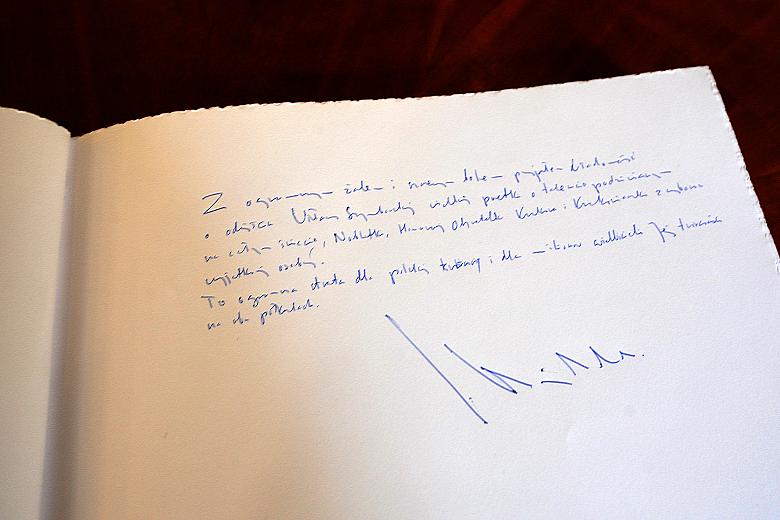 Z ogromnym żalem i szczerym bólem przyjąłem wiadomość
o odejściu Wisławy Szymborskiej wielkiej poetki o talencie podziwianym
na całym świecie, Noblistki, Honorowej Obywatelki Krakowa i Krakowianki z wyboru
wyjątkowej osoby.
To ogromna strata dla polskiej kultury i dla miłośników wielbicieli Jej twórczości
na obu półkulach.